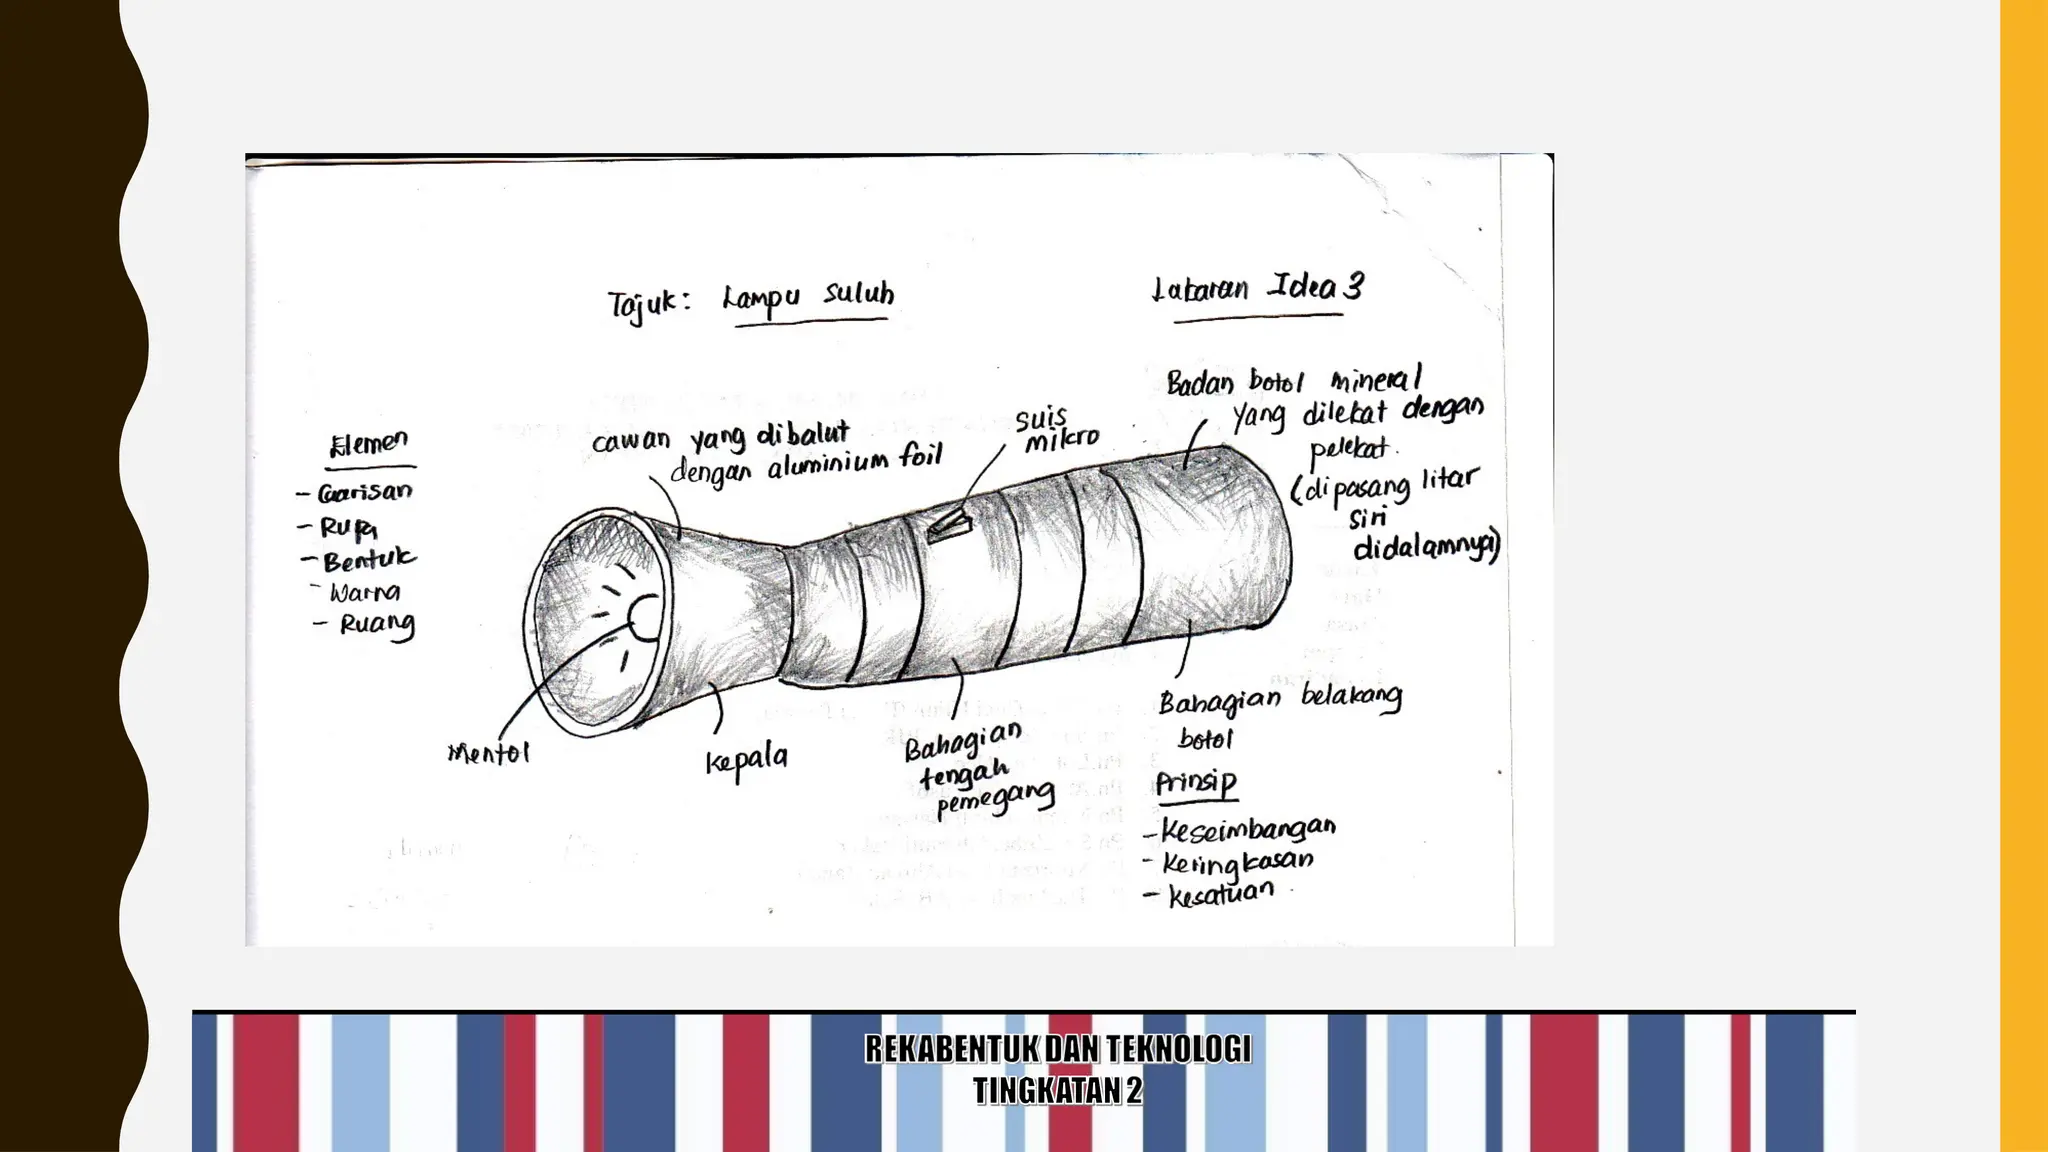 Tajuk: Lampu Suluh
Lakaran Idea 3
Elemen
- Gaarisan
- Rupa
- Bentuk
- Warna
- Ruang
cawan yang dibalut
dengan aluminium foil
suis
mikro
Badan botol mineral
yang dilekat dengan
pelekat.
(dipasang litar
siri
didalamnya)
Mentol
kepala
Bahagian
tengah
pemegang
Bahagian belakang
botol
Prinsip
- Keseimbangan
- Keringkasan
- Kesatuan
REKABENTUK DAN TEKNOLOGI
TINGKATAN 2